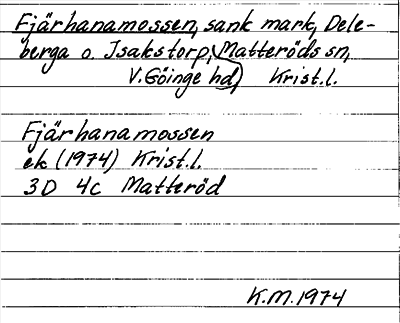 Fjärhanamossen, sank mark, Dele-
berga o. Isakstorp, Matteröds sn,
V. Göinge hd, Krist.l.
Fjärhanamossen
ek (1974) Krist.l.
3D 4c Matteröd
K.M. 1974